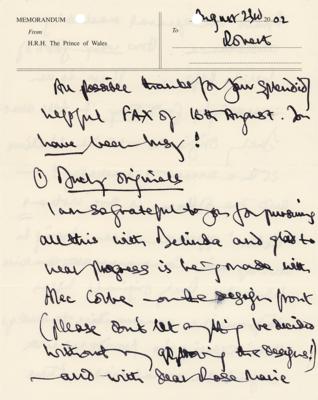 MEMORANDUM
From
H.R.H. The Prince of Wales
August 23rd 20 02
To
Robert
All possible thanks for your splendid
helpful FAX of 16th August. You
have been busy!
① Duchy Originals
I am so grateful to you for pursuing
all this with Belinda and glad to
hear progress is being made with
Alec — on the design front
(please don't let anything be decided
without my approving the designs!)
— and with dear Rose Marie